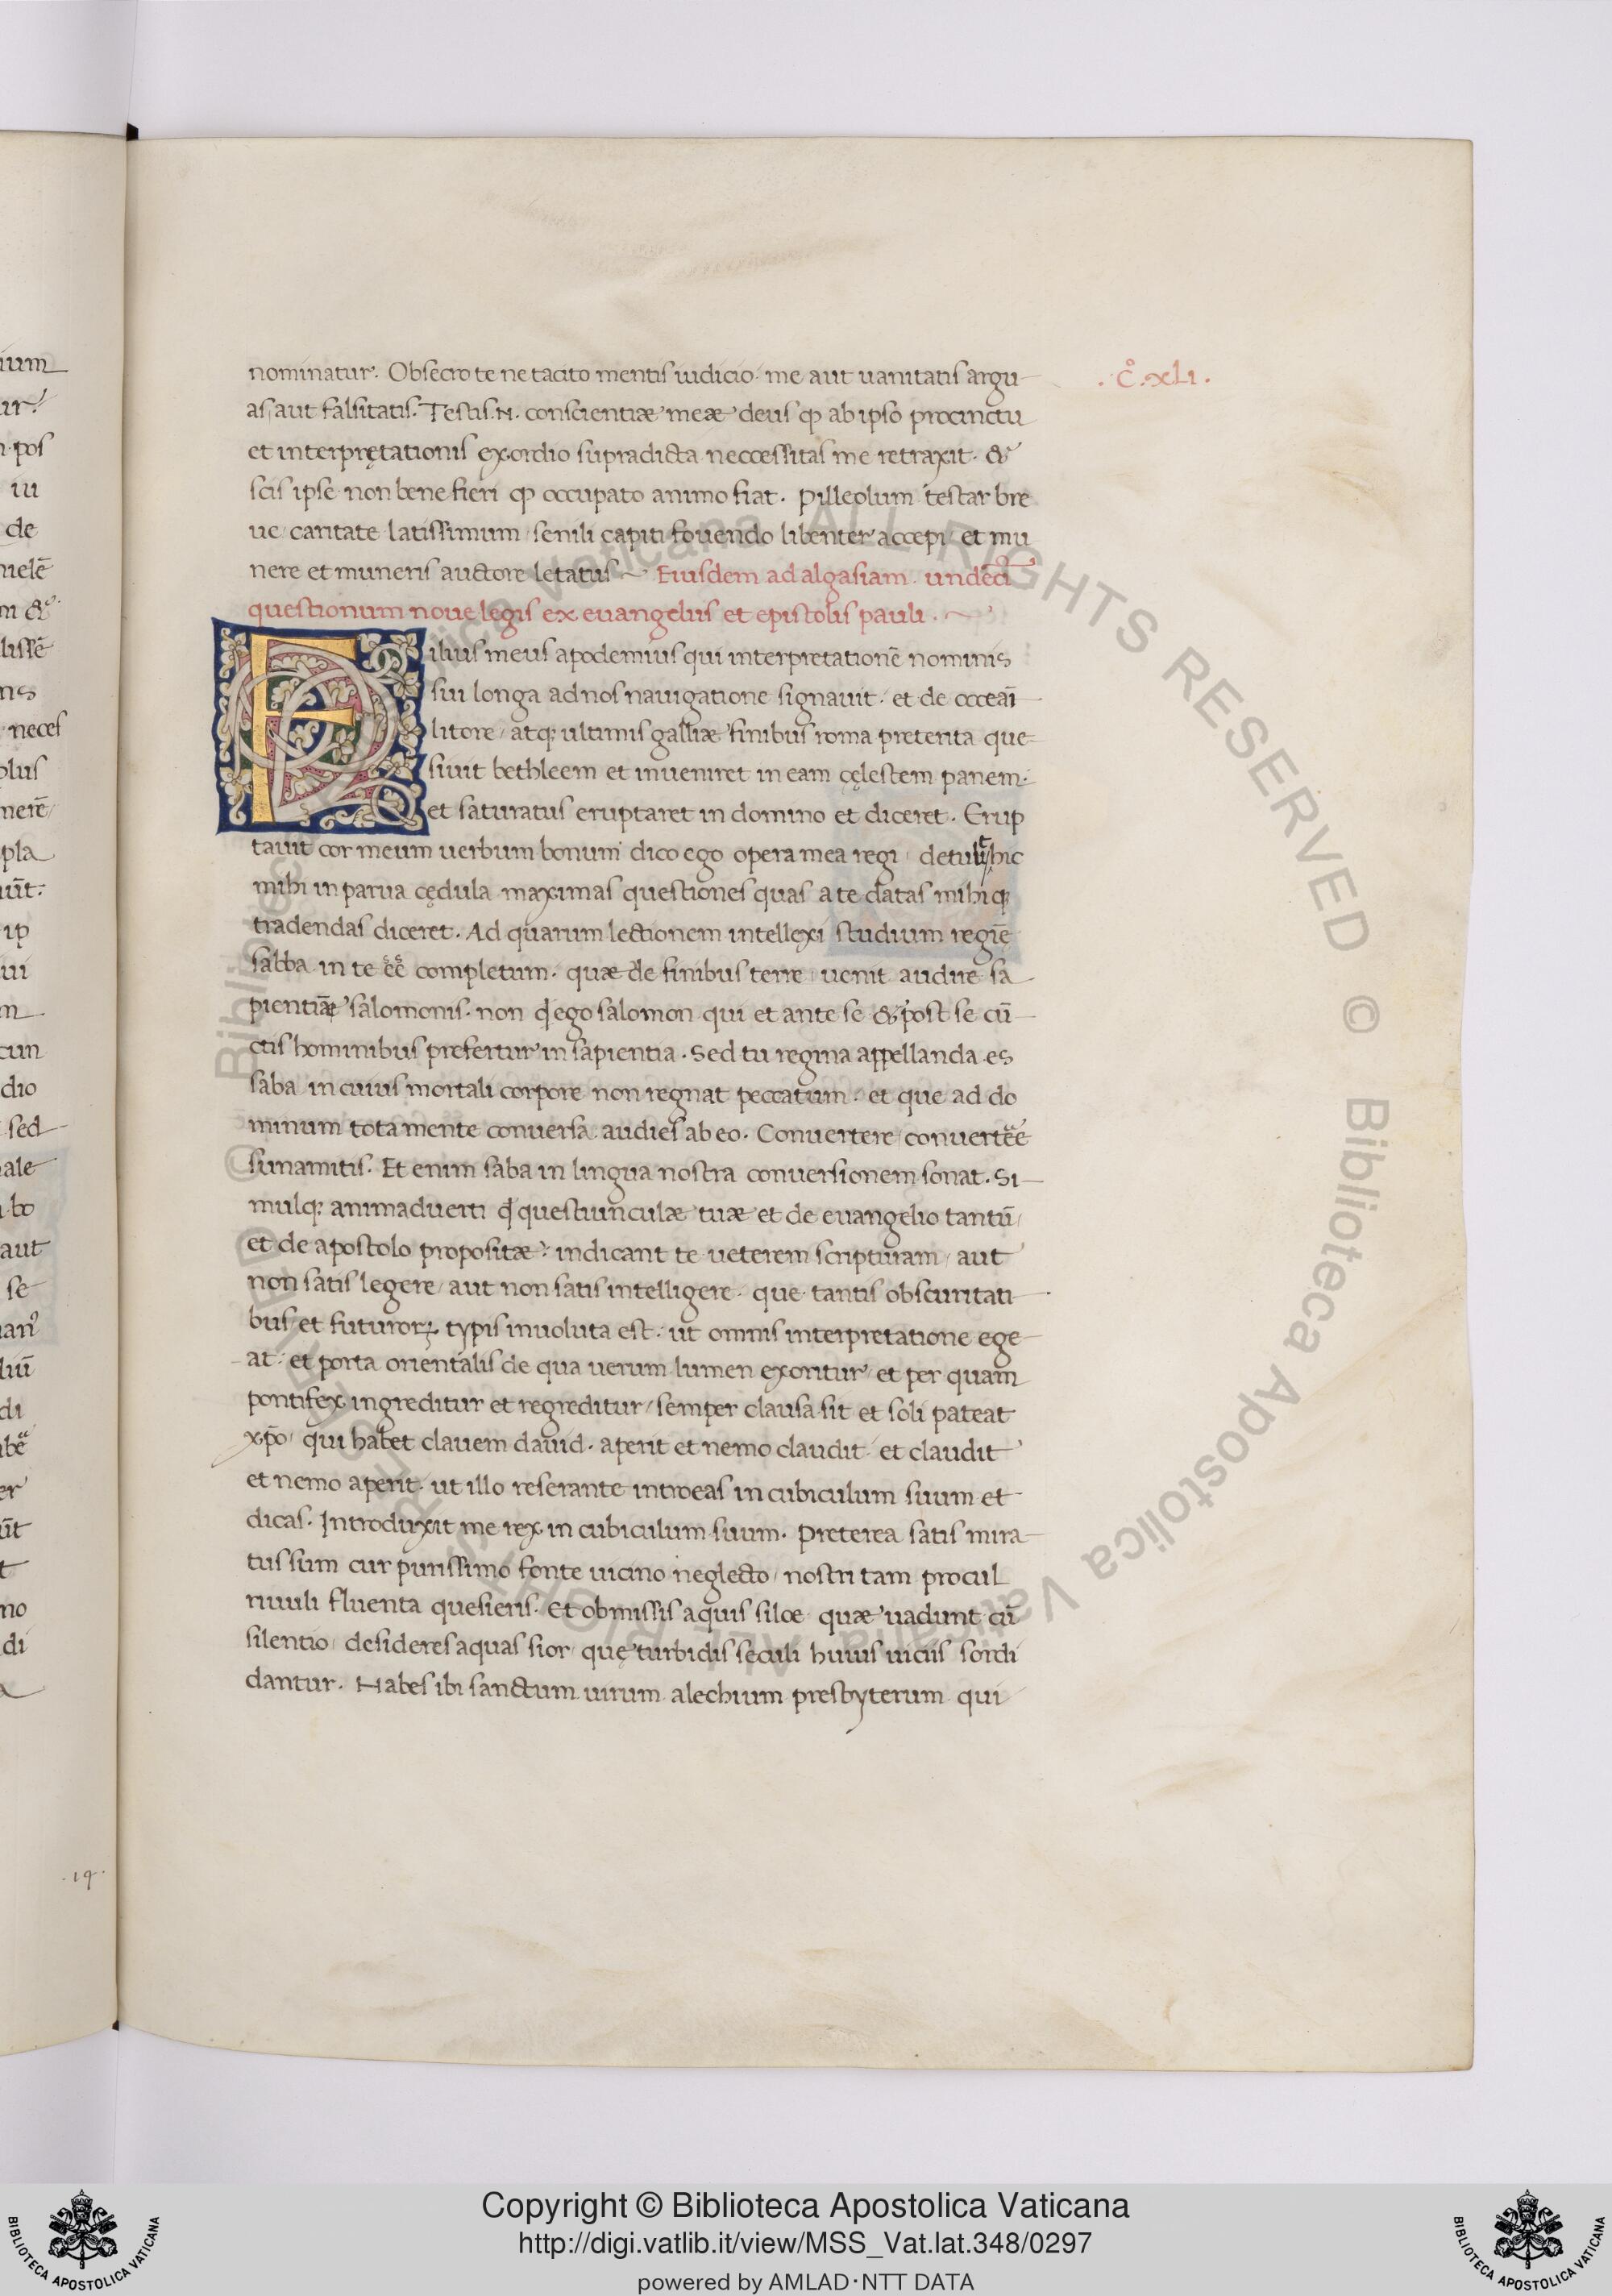 nominatur. Obsecro te ne tacito mentis iudicio me aut uanitatis argu
as aut falsitatis. Testis .N. conscientiæ meæ deus ꝙ ab ipso procinctu
et interpretationis exordio supradicta neccessitas me retraxit. &
scis ipse non bene fieri ꝙ occupato animo fiat. Pilleolum testar bre
ue caritate latissimum senili capiti fouendo libenter accepi et mu
nere et muneris auctore letatus ~ Eiusdem ad algasiam. undeci
questionum noue legis ex euangeliis et epistolis pauli. ~
.c̊.xLi.
Filius meus apodemius qui interpretationē nominis
sui longa ad nos nauigatione signauit. et de occeani
litore/ atq; ultimis galliæ finibus roma preterita que
siuit bethleem et inueniret in eam cęlestem panem.
et saturatus eruptaret in domino et diceret. Erup
tauit cor meum uerbum bonum dico ego opera mea regi detulit hic
mihi in parua cędula maximas questiones quas a te datas mihiq;
tradendas diceret. Ad quarum lectionem intellexi studium reginę
sabba in te eē completum. quæ de finibus terre uenit audire sa
pientiā salomonis. non ꝗ ego salomon qui et ante se & post se cū
ctis hominibus prefertur in sapientia. Sed tu regina appellanda es
saba in cuius mortali corpore non regnat peccatum. et que ad do
minum tota mente conuersa audies ab eo. Conuertere/ conuertere
sunamitis. Et enim saba in lingua nostra conuersionem sonat. Si
mulq; animaduerti ꝗ questiunculæ tuæ et de euangelio tantū/
et de apostolo propositæ indicant te ueterem scripturam/ aut
non satis legere/ aut non satis intelligere. que tantis obscuritati
bus/ et futuroꝝ typis inuoluta est. ut omnis interpretatione ege
at. et porta orientalis de qua uerum lumen exoritur/ et per quam
pontifex ingreditur et regreditur/ semper clausa sit et soli pateat
xp̄o/ qui habet clauem dauid. aperit et nemo claudit et claudit
et nemo aperit. ut illo reserante introeas in cubiculum suum et
dicas. Introduxit me rex in cubiculum suum. Preterea satis mira
tus sum cur purissimo fonte uicino neglecto/ nostri tam procul
riuuli fluenta quesieris. Et obmissis aquis siloe quæ uadunt cū
silentio/ desideres aquas sior/ quę turbidis seculi huius uiciis sordi
dantur. Habes ibi sanctum uirum alechium presbyterum qui
ium
ur.
pos
iu
de
neces
pla
ip
ui
cun
dio
sed
ale
bo
aut
se
di
er
t
no
di
.19.
© Biblioteca Apostolica Vaticana ALL RIGHTS RESERVED © Biblioteca Apostolica Vaticana ALL RIGHTS RESERVED
Copyright © Biblioteca Apostolica Vaticana
http://digi.vatlib.it/view/MSS_Vat.lat.348/0297
powered by AMLAD·NTT DATA
BIBLIOTECA APOSTOLICA VATICANA
BIBLIOTECA APOSTOLICA VATICANA